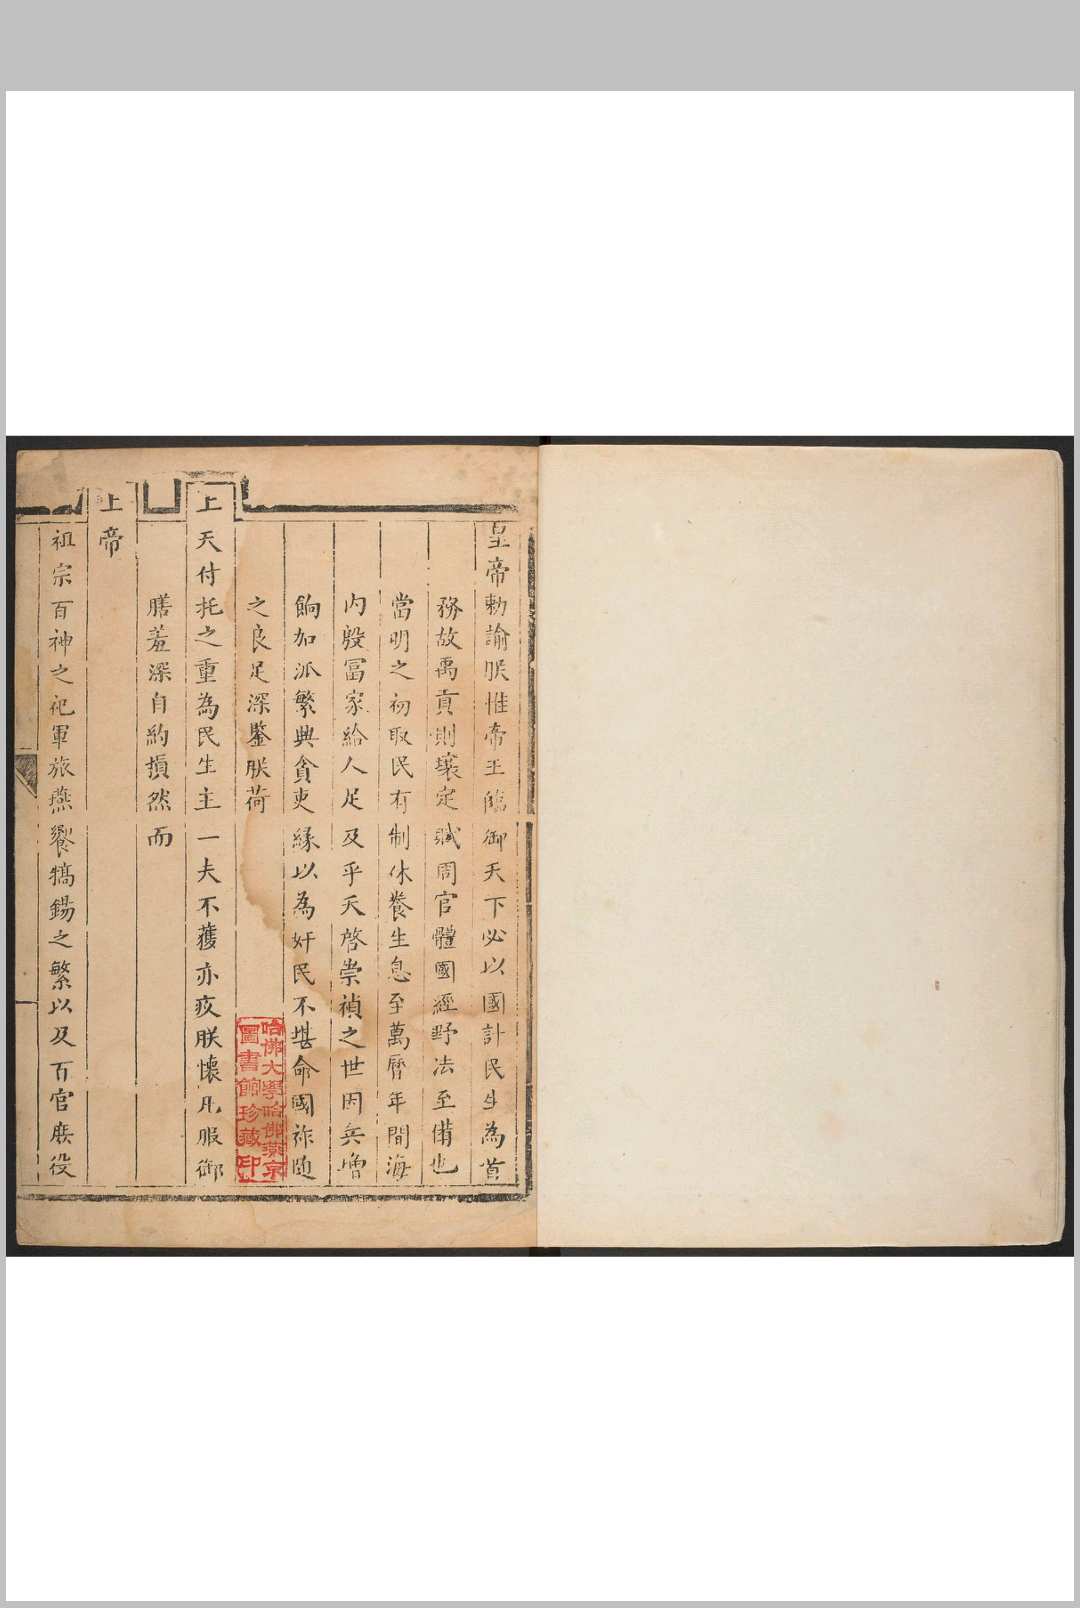 皇帝勅諭朕惟帝王臨御天下必以國計民生為首
務故禹貢則壤定賦周官體國經野法至備也
當明之初取民有制休養生息至萬曆年間海
内殷冨家給人足及乎天啓崇禎之世因兵增
餉加派繁興貪吏緣以為奸民不堪命國祚隨
之良足深鑒朕荷
上天付托之重為民生主一夫不獲亦疚朕懷凡服御
膳羞深自約損然而
上帝
祖宗百神之祀軍旅燕饗犒錫之繁以及百官廪役
哈佛大學哈佛燕京
圖書館珍藏印